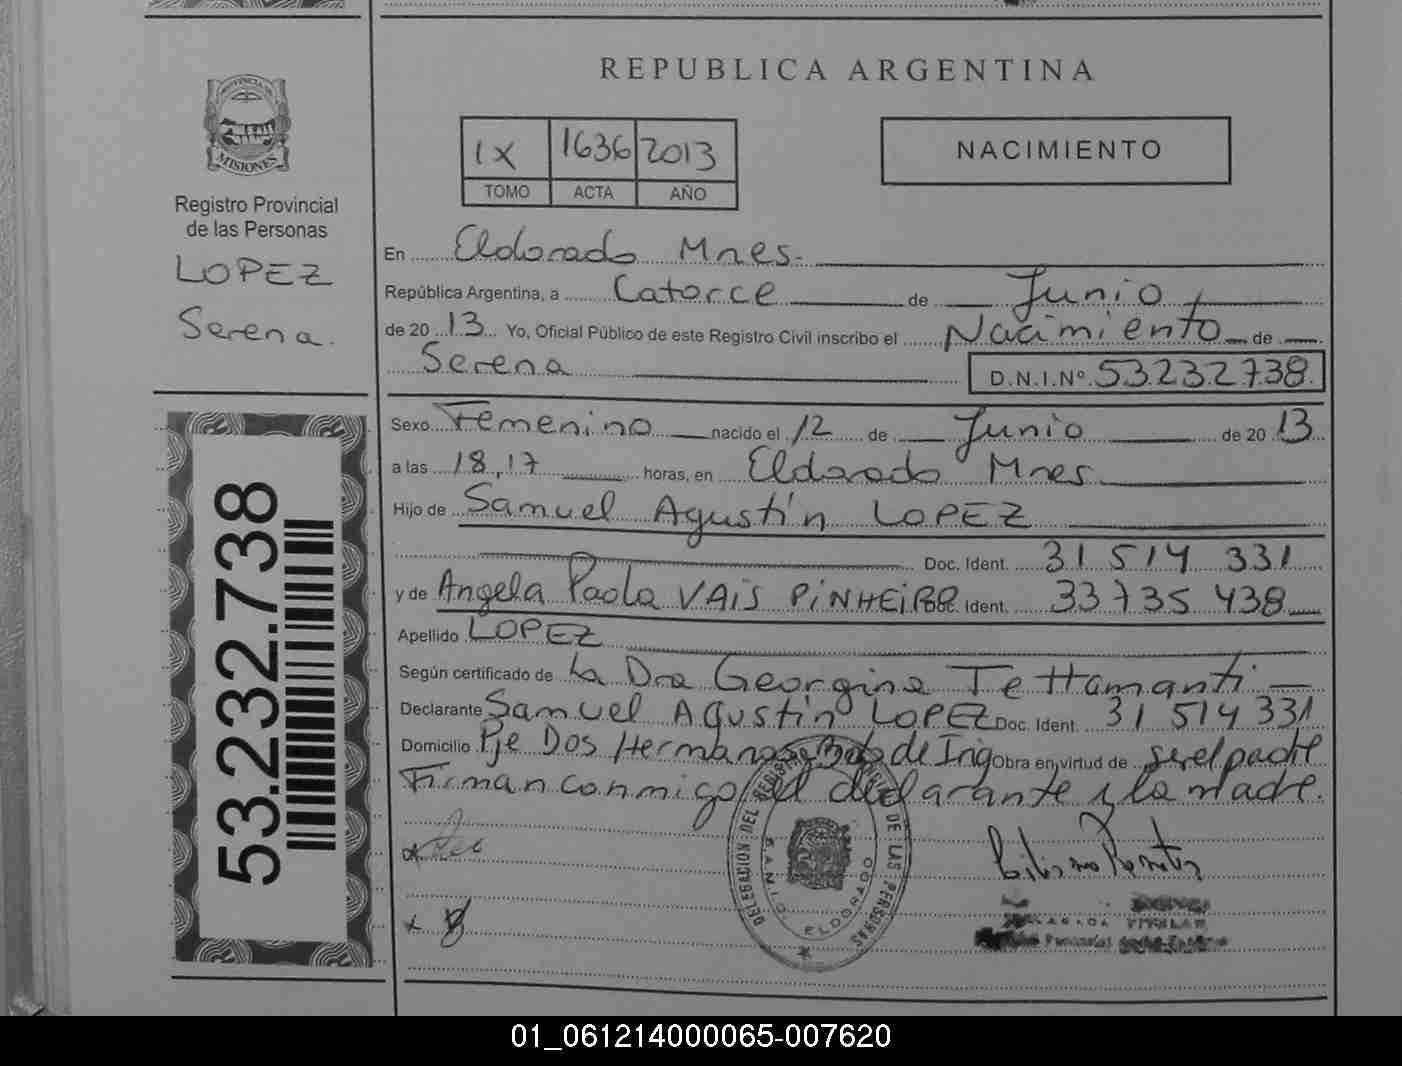 REPUBLICA ARGENTINA
PROVINCIA DE
MISIONES
Registro Provincial
de las Personas
LOPEZ
Serena.
53.232.738
IX 1636 2013
TOMO ACTA AÑO
NACIMIENTO
En Eldorado Mnes.
República Argentina, a Catorce de Junio
de 20 13 Yo, Oficial Público de este Registro Civil inscribo el Nacimiento de
Serena D.N.I.Nº 53.232.738
Sexo Femenino nacido el 12 de Junio de 20 13
a las 18,17 horas, en Eldorado Mnes
Hijo de Samuel Agustín LOPEZ
Doc. Ident. 31 514 331
y de Angela Paola VAIS PINHEIRO Doc. Ident. 33735 438
Apellido LOPEZ
Según certificado de La Dra Georgina Tettamanti
Declarante Samuel Agustín LOPEZ Doc. Ident. 31 514 331
Domicilio Pje Dos Hermanas Bdo de Irig Obra en virtud de ser el padre
Firman conmigo el declarante y la madre.
DELEGACION DEL REGISTRO DE LAS PERSONAS
ELDORADO
01_061214000065-007620